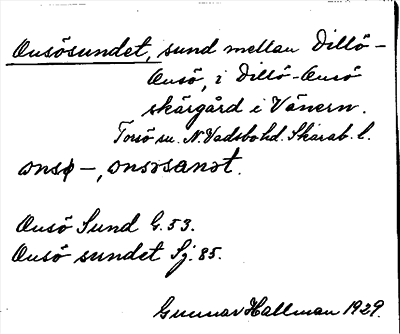 Onsösundet, sund mellan Dillö-
Onsö, i Dillö-Onsö
skärgård i Vänern.
Torsö sn. N. Vadsbo hd. Skarab. l.
onsø–,
Onsö Sund G. 53.
Onsö sundet Sj. 85.
Gunnar Hallman 1929.